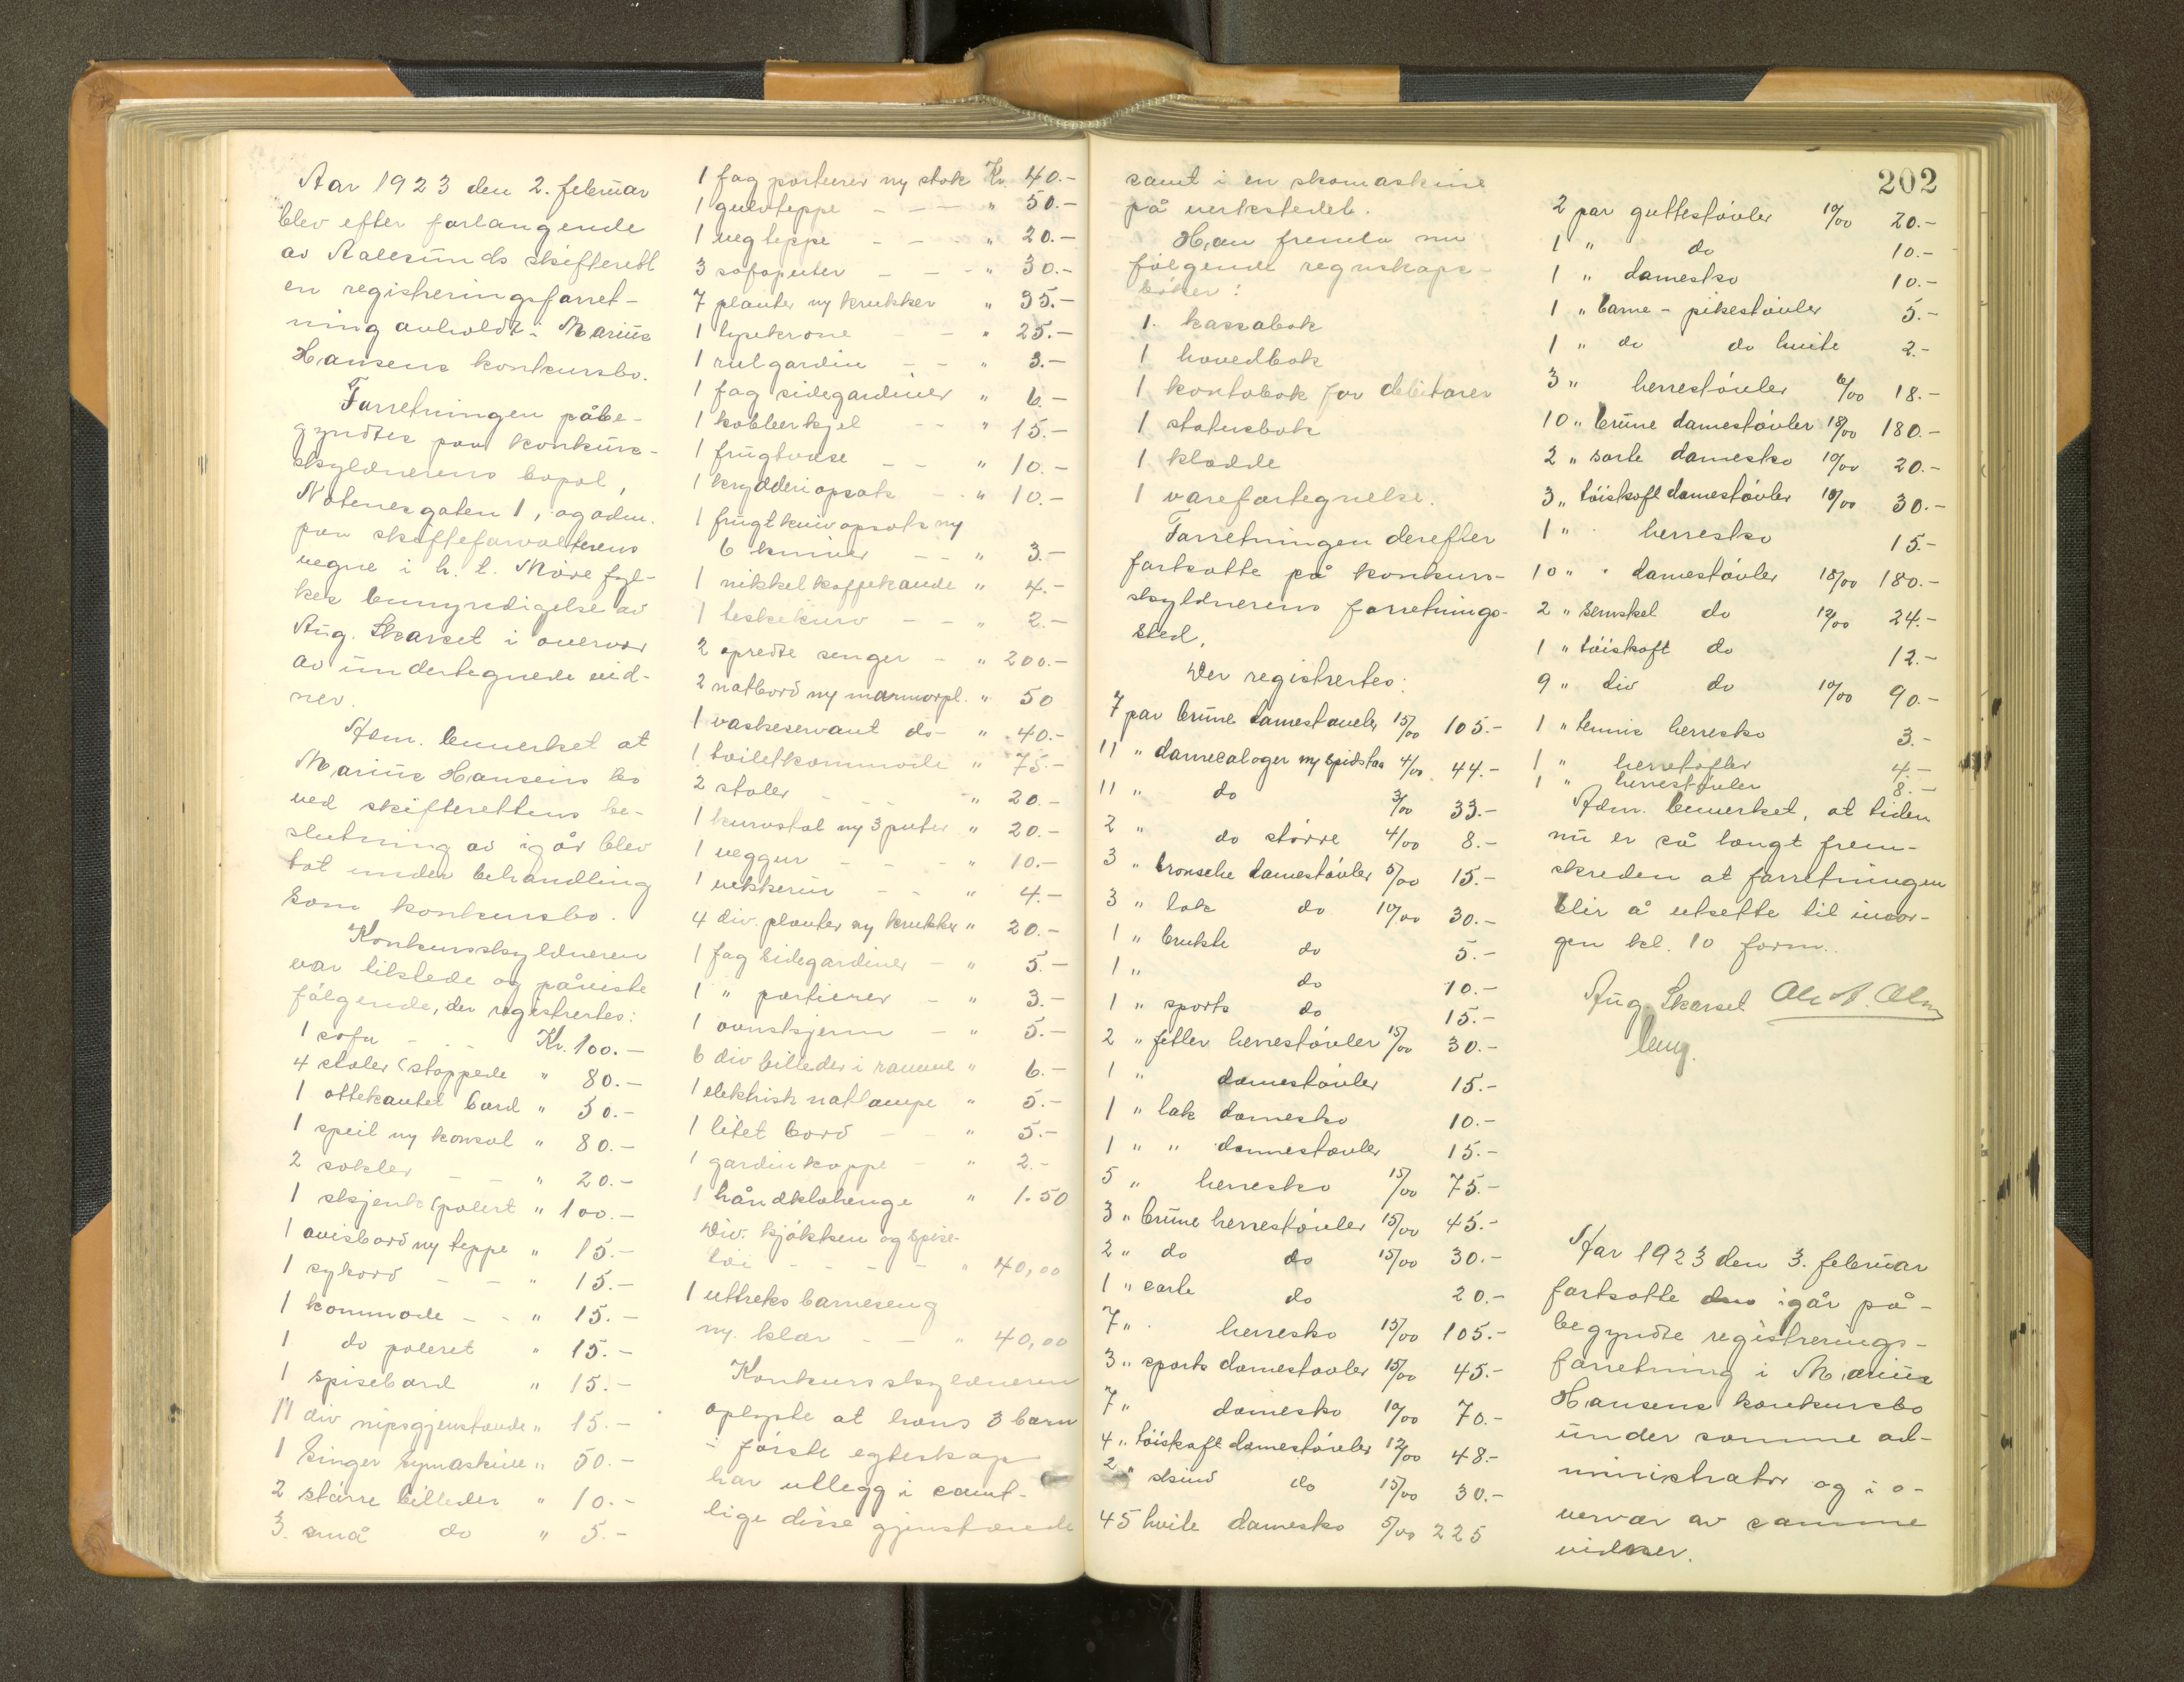 Aar 1923 den 2. februar
blev efter forlangende
av Aalesunds skifterett
en registreringsforret-
ning avholdt i Marius
Hansens konkursbo.
Forretningen påbe-
gyndtes paa konkurs-
skyldnerens bopæl,
Nøtenesgaten 1, og adm.
paa skifteforvalterens
vegne i h. t. Møre fyl-
kes bemyndigelse av
Aug. Skarset i overvær
av undertegnede vid-
ner.
Adm. bemerket at
Marius Hansens bo
ved skifterettens be-
slutning av igår blev
tat under behandling
som konkursbo.
Konkursskyldneren
var tilstede og påviste
følgende, der registrertes:
1 sofa - - - Kr. 100.-
4 stoler (stoppede " 80.-
1 ottekantet bord " 30.-
1 speil m/ konsol " 80.-
2 sokler - - " 20.-
1 skjenk (polert " 100.-
1 avisbord m/ teppe " 15.-
1 sybord - - " 15.-
1 kommode - - " 15.-
1 do poleret " 15.-
1 spisebord " 15.-
11 div nipsgjenstande " 15.-
1 Singer symaskine " 50.-
2 større billeder " 10.-
3 små do " 5.-
1 fag portierer m/ stok Kr. 40.-
1 gulvteppe - - - " 50.-
1 vegteppe - - - " 20.-
3 sofaputer - - - " 30.-
7 planter m/ krukker " 35.-
1 lysekrone - - " 25.-
1 rulgardin - - " 3.-
1 fag sidegardiner " 6.-
1 kobberkjel - - " 15.-
1 frugtvase - - " 10.-
1 krydderiopsats - - " 10.-
1 frugtknivopsats m/
6 kniver - - " 3.-
1 nikkel kaffekande " 4.-
1 teskekurv - - " 2.-
2 opredte senger - " 200.-
2 natbord m/ marmorpl. " 50
1 vaskeservant do - " 40.-
1 toiletkommode " 75.-
2 stoler - - - " 20.-
1 kurvstol m/ 3 puter " 20.-
1 veggur - - - " 10.-
1 vekkerur - - " 4.-
4 div. planter m/ krukker " 20.-
1 fag sidegardiner - " 5.-
1 " portierer - " 3.-
1 ovnskjerm - " 5.-
6 div billeder i ramme " 6.-
1 elektrisk natlampe " 5.-
1 litet bord - - " 5.-
1 gardinkappe - " 2.-
1 håndklæhenge " 1.50
Div. kjøkken og spise-
tøi - - - - " 40,00
1 uttreks barneseng
m/. klær - - " 40,00
Konkursskyldneren
oplyste at hans 3 barn
i første egteskap
har utlegg i samt-
lige disse gjenstande
202
samt i en skomaskine
på verkstedet.
Han fremla nu
følgende regnskaps-
bøker:
1 kassabok
1 hovedbok
1 kontobok for debitorer
1 statusbok
1 kladde
1 varefortegnelse.
Forretningen derefter
fortsatte på konkurs-
skyldnerens forretnings-
sted.
Der registrertes:
7 par brune damestøvler 15/00 105.-
11 " damecaloger m/ spidstaa 4/00 44.-
11 " do 3/00 33.-
2 " do større 4/00 8.-
3 " bronsche damestøvler 5/00 15.-
3 " lak do 10/00 30.-
1 " brukte do 5.-
1 " do 10.-
1 " sports do 15.-
2 " fetler herrestøvler 15/00 30.-
1 " damestøvler 15.-
1 " lak damesko 10.-
1 " " damestøvler 15.-
5 " herresko 15/00 75.-
3 " brune herrestøvler 15/00 45.-
2 " do do 15/00 30.-
1 " sorte do 20.-
7 " herresko 15/00 105.-
3 " sports damestøvler 15/00 45.-
7 " damesko 10/00 70.-
4 " tøiskaft damestøvler 12/00 48.-
2 " skind do 15/00 30.-
45 hvite damesko 5/00 225
2 par guttestøvler 10/00 20.-
1 " do 10.-
1 " damesko 10.-
1 " barne - pikestøvler 5.-
1 " do do hvite 2.-
3 " herrestøvler 6/00 18.-
10 " brune damestøvler 18/00 180.-
2 " sorte damesko 10/00 20.-
3 " tøiskaft damestøvler 10/00 30.-
1 " herresko 15.-
10 " " damestøvler 18/00 180.-
2 " semskel do 12/00 24.-
1 " tøiskaft do 12.-
9 " div do 10/00 90.-
1 " tennis herresko 3.-
1 " herretøfler 4.-
1 " herrestøvler 8.-
Adm. bemerket, at tiden
nu er så langt frem-
skreden at forretningen
blir å utsette til imor-
gen kl. 10 form..
Aug. Skarset
bem.
Aar 1923 den 3. februar
fortsatte den igår på-
begyndte registrerings-
forretning i Marius
Hansens konkursbo
under samme ad-
ministrator og i o-
vervær av samme
vidner.